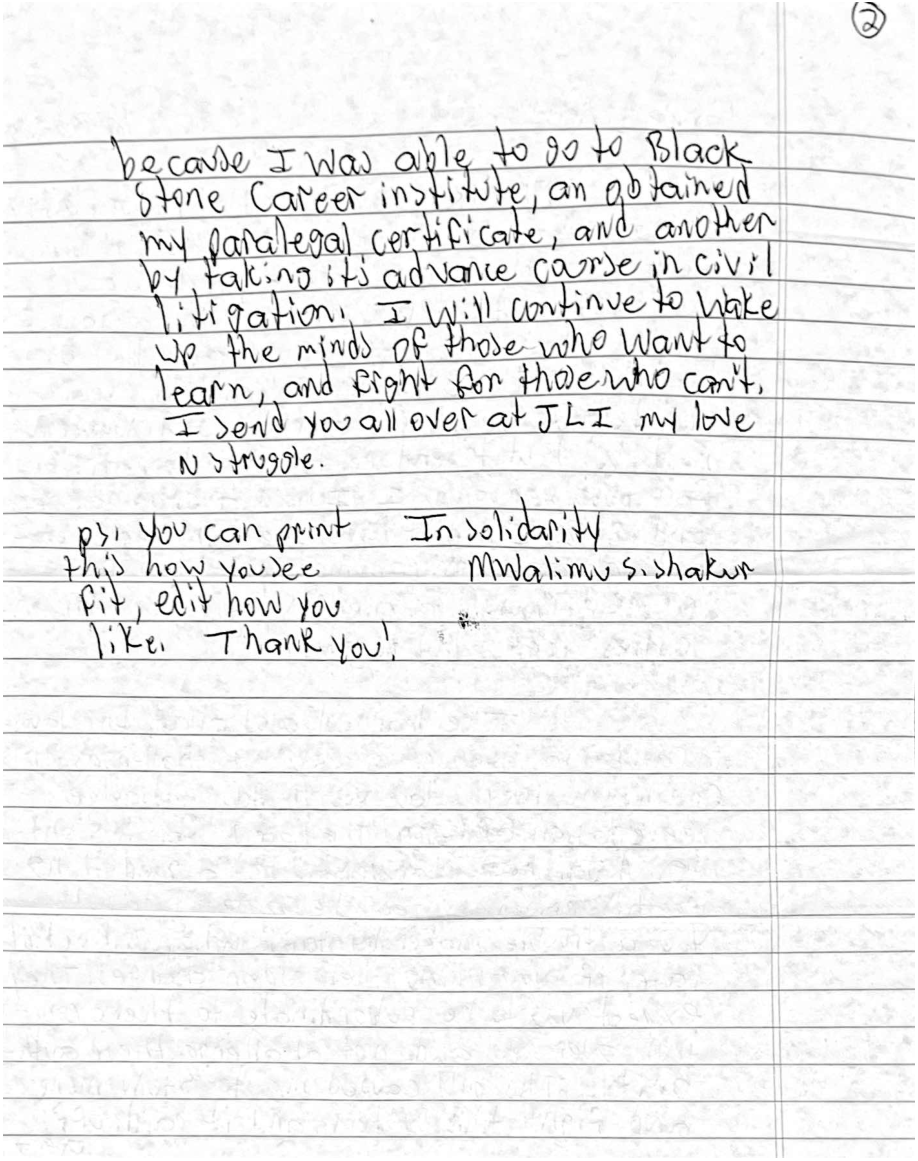 ②
because I was able to go to Black
Stone Career institute, an obtained
my paralegal certificate, and another
by taking its advance course in civil
litigation. I will continue to wake
up the minds of those who want to
learn, and fight for those who can't.
I send you all over at JLI my love
N struggle.
ps, you can print
this how you see
fit, edit how you
like. Thank you!
In solidarity
Mwalimu S. Shakur